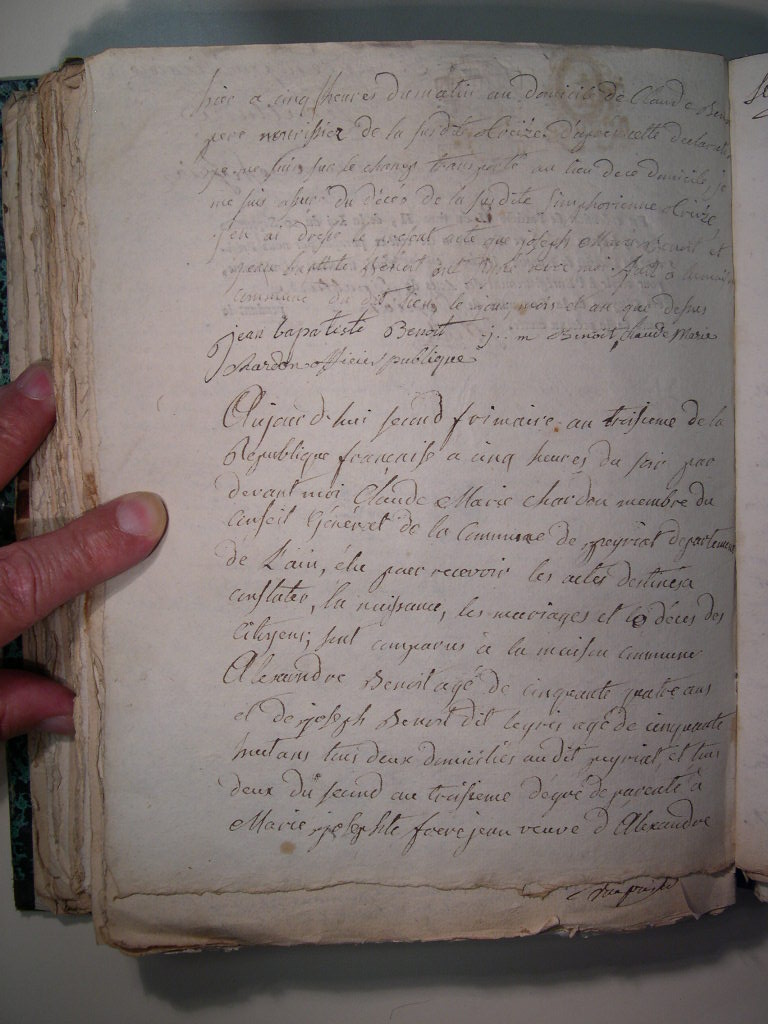 hier a cinq heures du matin au domicile de Claude Ben
pere nourissier de la susdite Crièze. d'apres cette declaration
je me suis sur le champs transporté au lieu de ce domicile, je
me suis assuré du décés de la susdite Simphorienne Crièze
j'en ai dressé le présent acte que joseph Marie Benoit et
jean baptiste Benoit ont signé avec moi. fait à
commune du dit lieu le jour mois et an que dessus
jean bapatiste Benoit j. m Benoit, Claude Marie
Chardon officier publique
Aujourd'hui second frimaire an troisieme de la
Republique francaise a cinq heures du soir par
devant moi Claude Marie Chardon membre du
Conseil Général de la Commune de peyriat departement
de L'ain, élu pour recevoir les actes destinés a
constater, la naissance, les mariages et les déces des
Citoyens; sont comparus à la maison commune
Alexandre Benoit agé de cinquante quatre ans
et de joseph Benoit dit Leyris agé de cinquante
huit ans tous deux domiciliés audit peyriat, et tous
deux du second au troisieme dégré de parenté à
Marie josephte frerejean veuve d'Alexandre